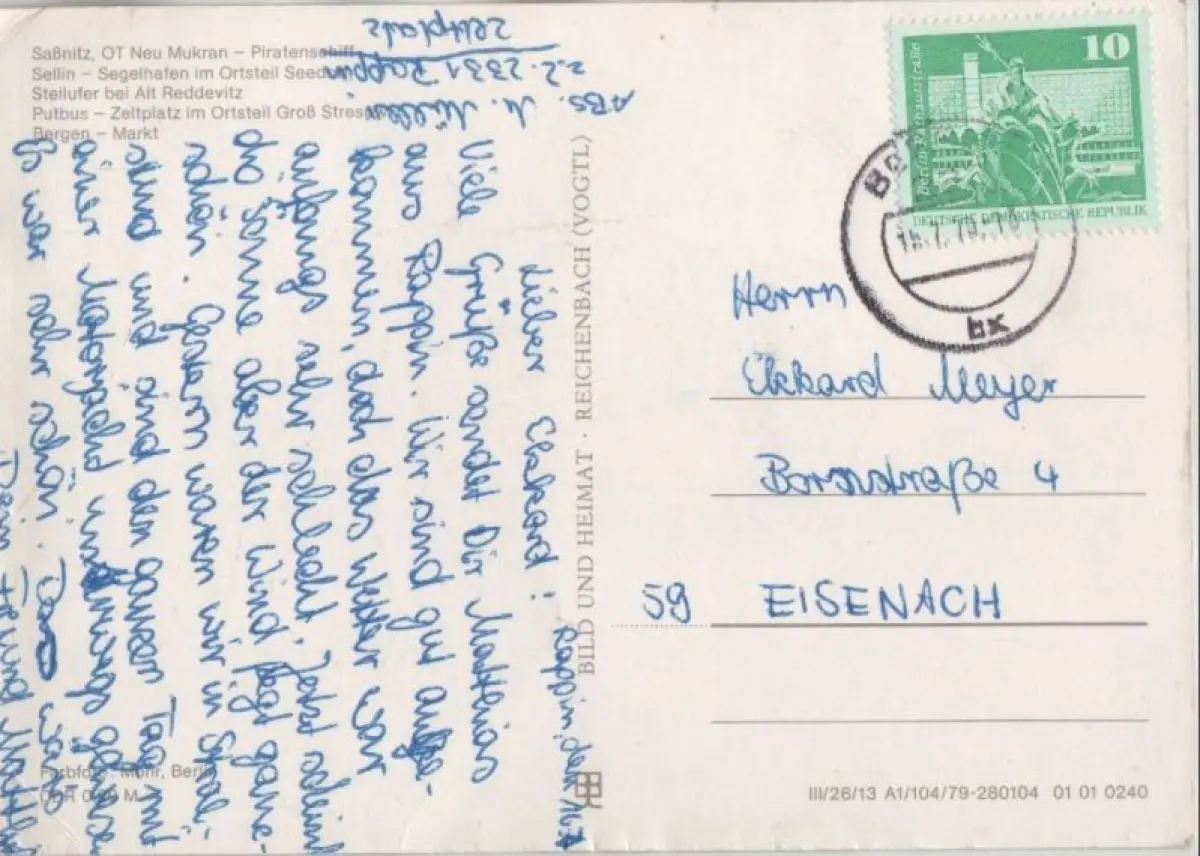 Saßnitz, OT Neu Mukran – Piratenschiff
Sellin – Segelhafen im Ortsteil
Steilufer bei Alt Reddevitz
Putbus – Zeltplatz im Ortsteil Groß
Bergen – Markt
ABS. M. Müller
z.Z. 2331 Rappin
Zeltplatz
Rappin, den 16.7.
Lieber Ekkard!
Viele Grüße sendet Dir Matthias
aus Rappin. Wir sind gut ange-
kommen, doch das Wetter war
anfangs sehr schlecht. Jetzt scheint
die Sonne aber der Wind fegt ganz
schön. Gestern waren wir in Stral-
sund und sind den ganzen Tag mit
einer Motorjacht unterwegs gewesen
Es war sehr schön.
Dein Freund Matthias
BILD UND HEIMAT · REICHENBACH (VOGTL)
10
Berlin, Rathausstraße
DEUTSCHE DEMOKRATISCHE REPUBLIK
bx
Herrn
Ekkard Meyer
Bornstraße 4
59 EISENACH
Farbfoto: Mohr, Berlin
III/26/13 A1/104/79-280104 01 01 0240